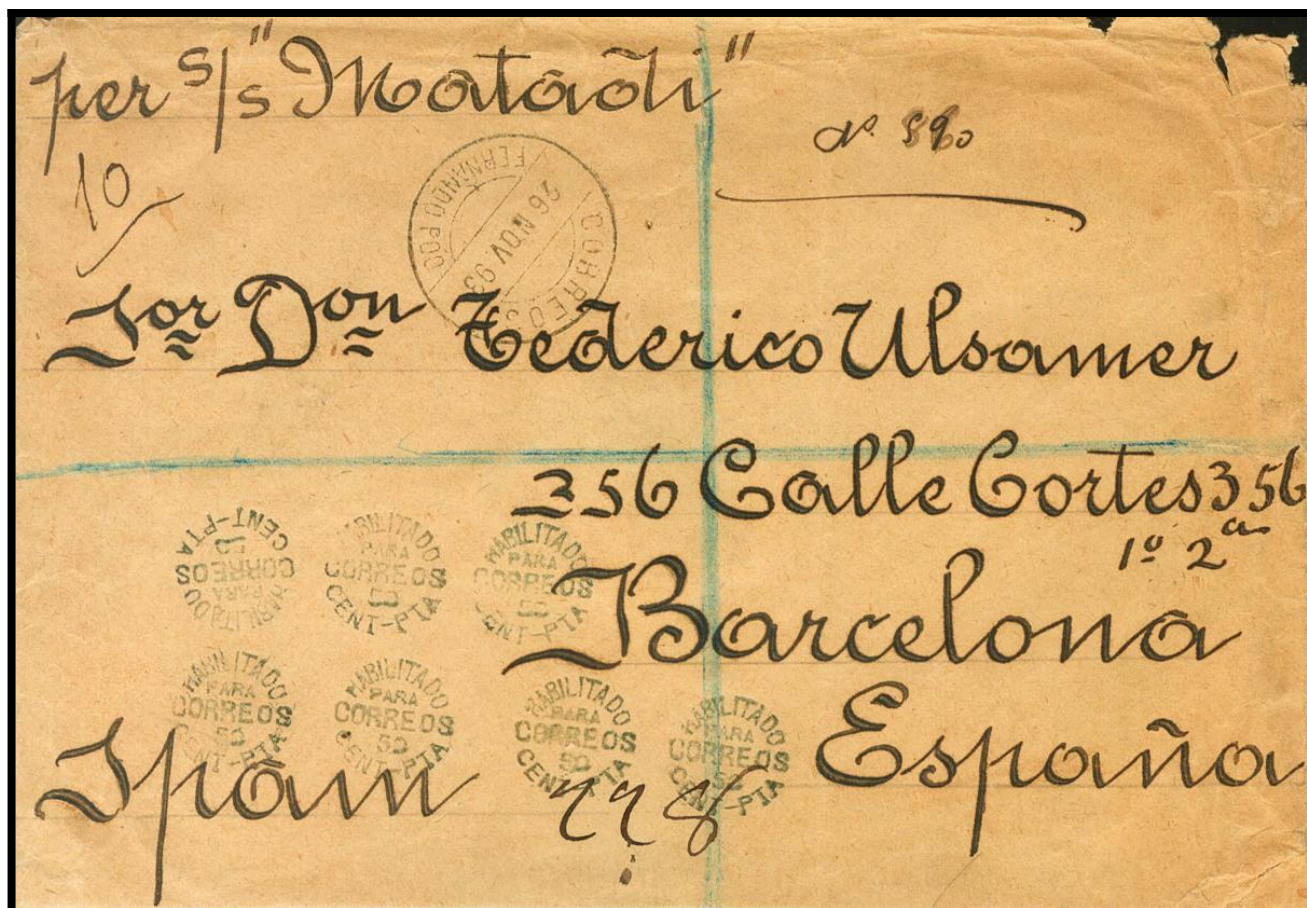 per s/s "Mataöli"
10
No. 890
CORREOS
26 NOV. 93
FERNANDO POO
Sor Don Federico Ulsamer
356 Calle Cortes 356
1º 2ª
Barcelona
España
Spain
778
HABILITADO PARA CORREOS 50 CENT-PTA
HABILITADO PARA CORREOS 50 CENT-PTA
HABILITADO PARA CORREOS 50 CENT-PTA
HABILITADO PARA CORREOS 50 CENT-PTA
HABILITADO PARA CORREOS 50 CENT-PTA
HABILITADO PARA CORREOS 50 CENT-PTA
HABILITADO PARA CORREOS 50 CENT-PTA